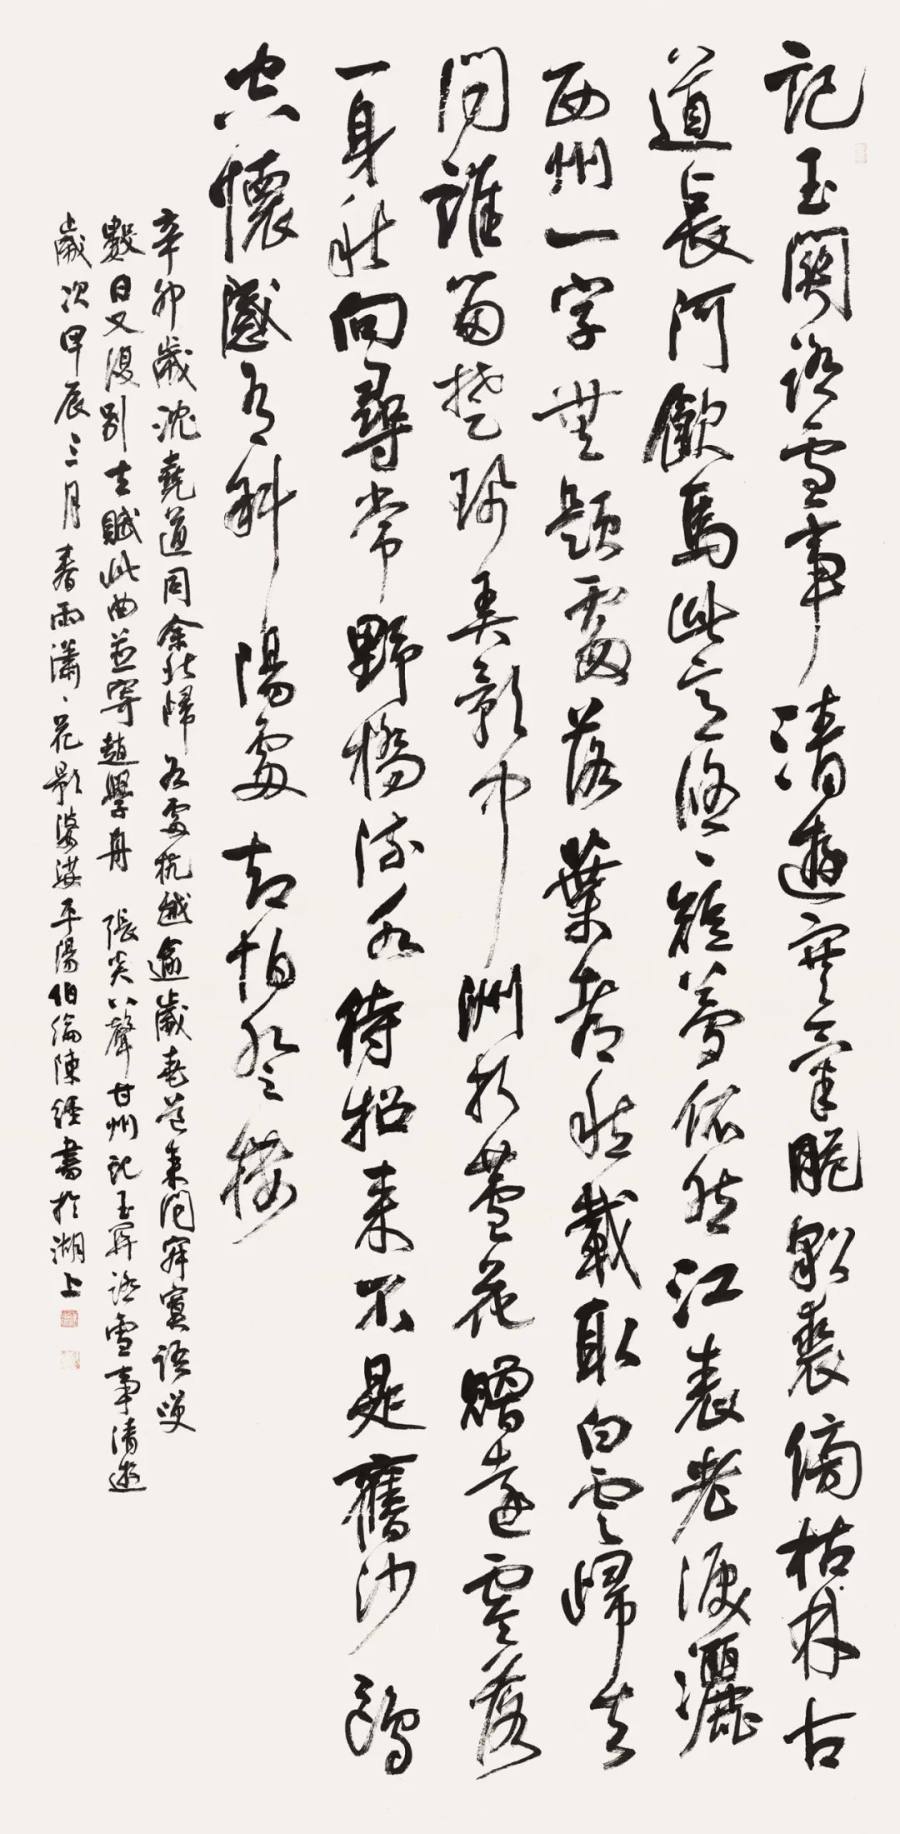 記玉關踏雪事清遊寒氣脆貂裘傍枯林古
道長河飲馬此意悠悠短夢依然江表老淚灑
西州一字無題處落葉都愁載取白雲歸去
問誰留楚珮弄影中洲折蘆花贈遠零落
一身秋向尋常野橋流水待招來不是舊沙鷗
空懷感有斜陽處却怕登樓
辛卯歲沈堯道同余北歸各處杭越逾歲堯道來問寂寞語笑
數日又復別去賦此曲並寄趙學舟 張炎八聲甘州記玉關踏雪事清遊
歲次甲辰三月春雨瀟瀟花影婆娑平陽伯倫陳經書於湖上